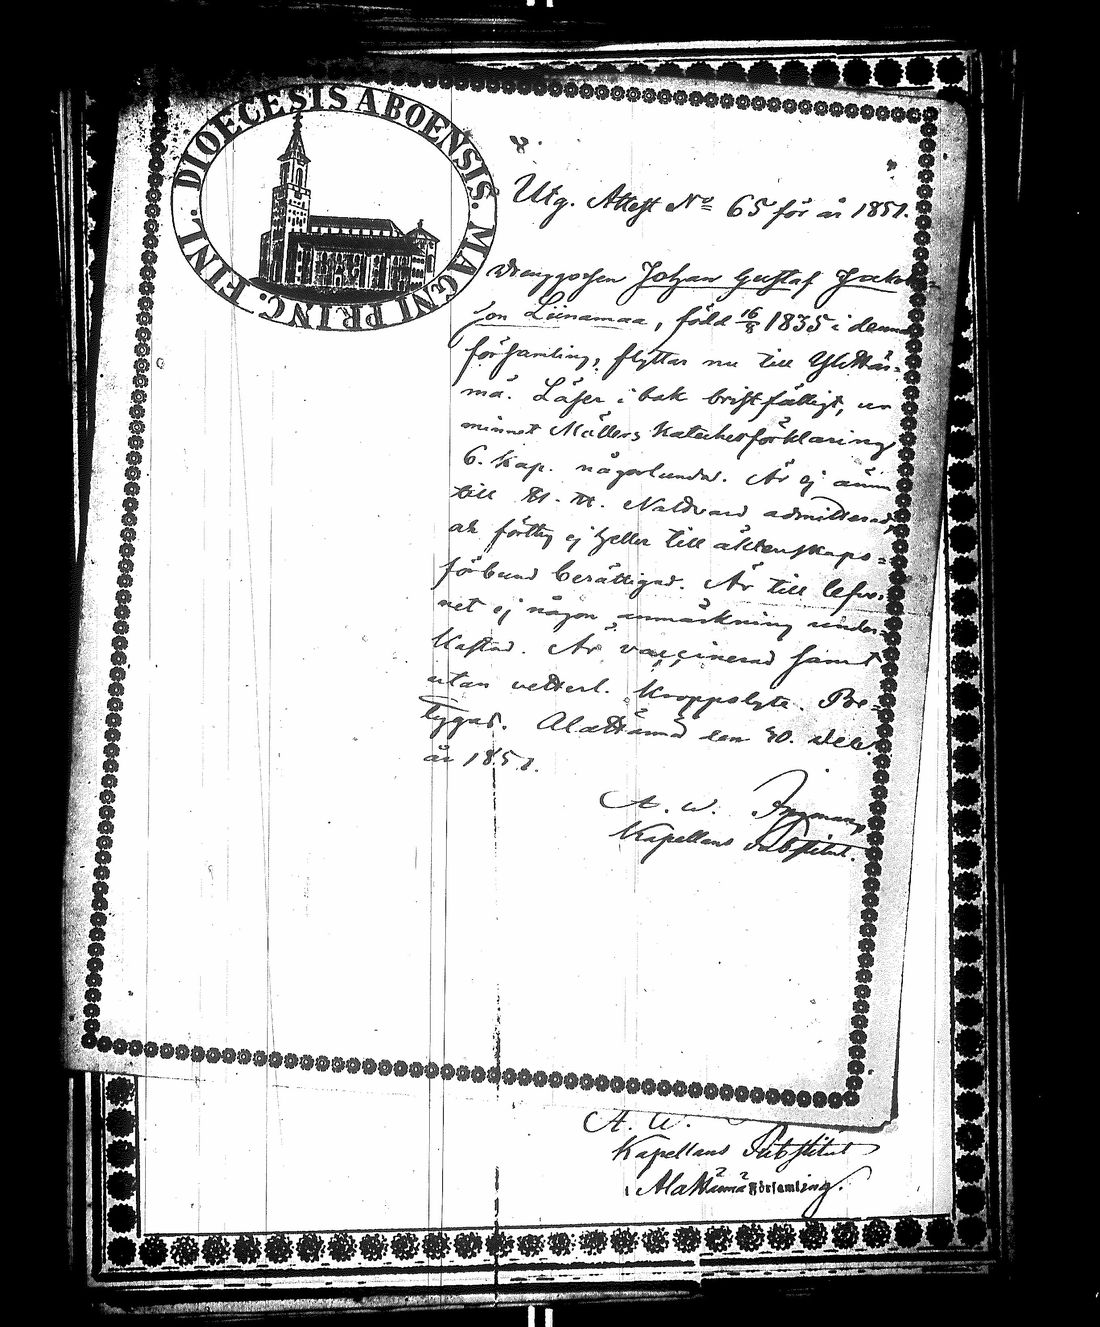 DIOECESIS ABOENSIS. MAGNI PRINC. FINL.
Utg. Attest No 65 för år 1851.
Drenggossen Johan Gustaf Jakobs-
son Liinamaa, född 16/8 1835 i denna
församling, flyttar nu till Ylihär-
mä. Läser i bok bristfälligt, ur
minnet Möllers Katechesförklaring
6. Kap. någorlunda. Är ej ännu
till H. H. Nattvard admitterad
och förthy ej heller till äktenskaps-
förbund berättigad. Är till lefver-
net ej någon anmärkning under-
kastad. Är vaccinerad samt
utan vetterl. Kroppslyte. Be-
tygar. Alahärmä den 30. Dec.
år 1851.
A. W.
Kapellans Substitut.
A. W.
Kapellans Substitut
i Alahärmä Församling.